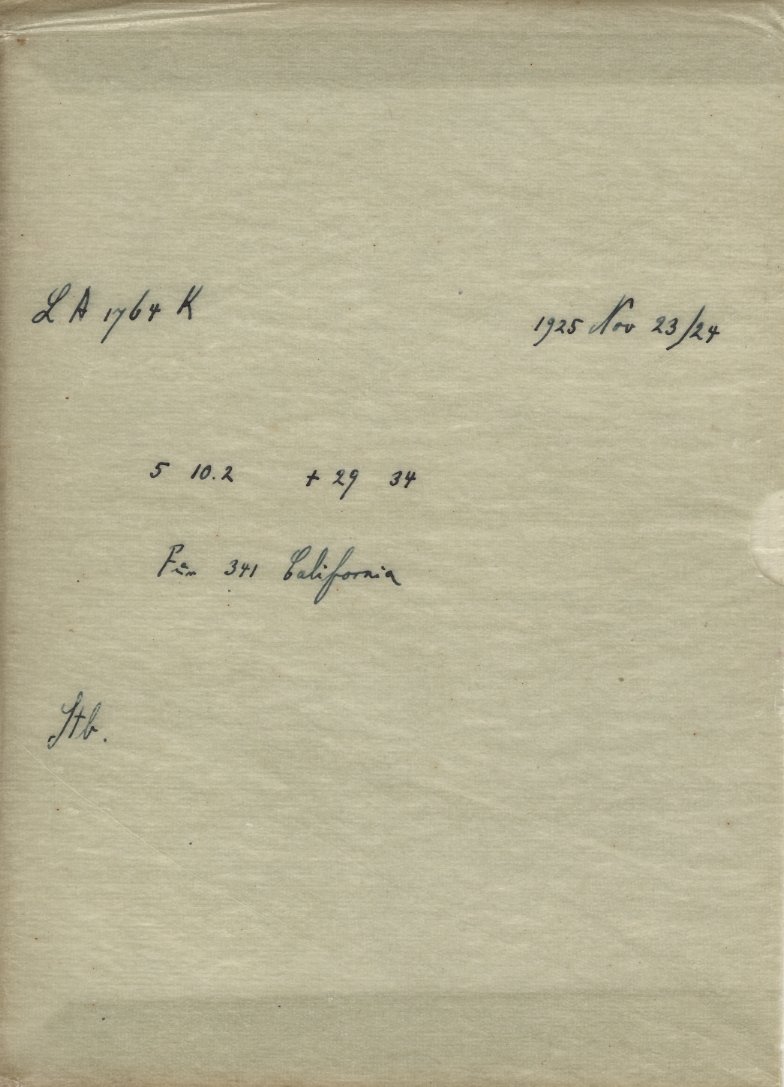 L A 1764 K 1925 Nov 23/24
5 10.2 + 29 34
Für 341 California
Stb.